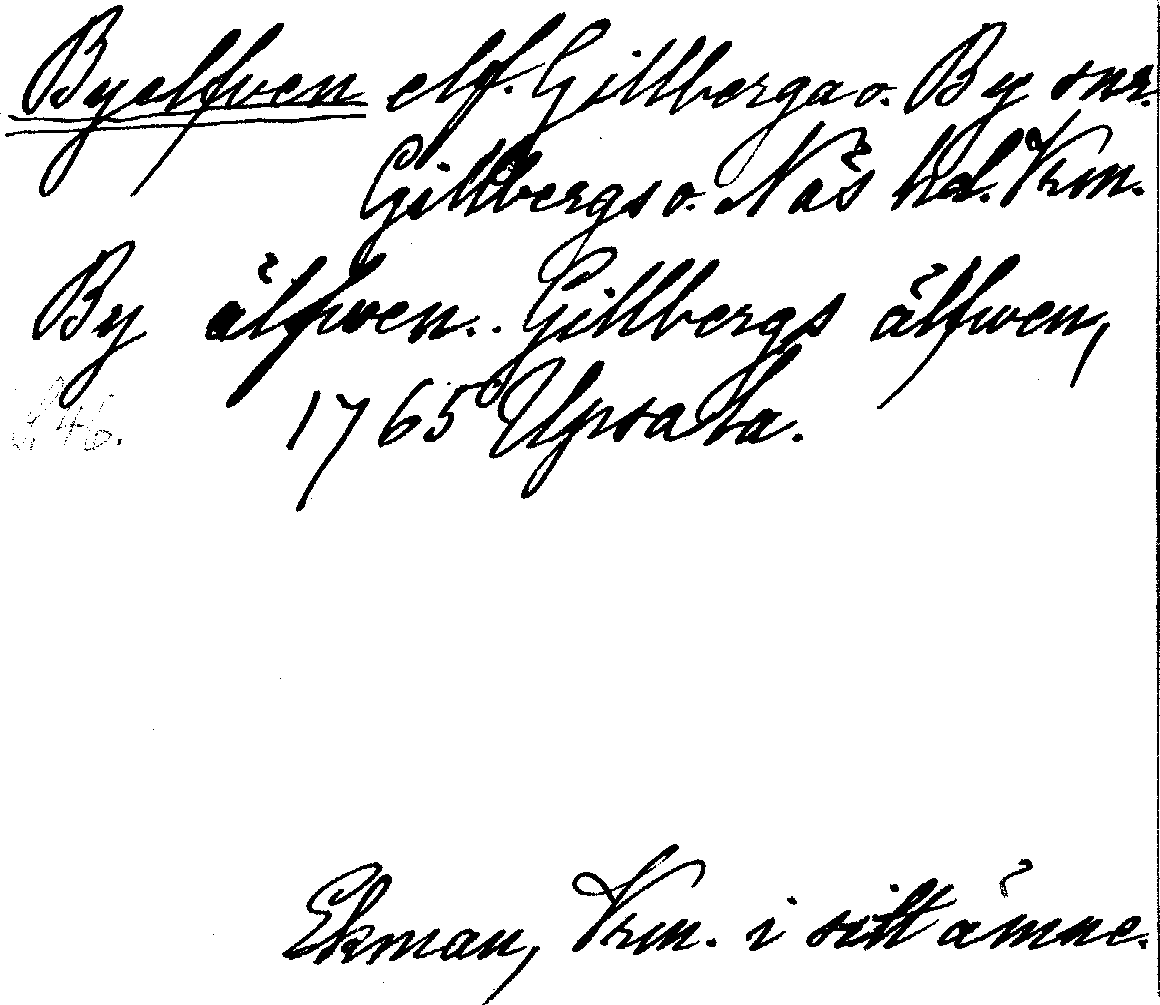 Byelfven elf. Gillberga o. By snr.
Gillbergs o. Näs hd. Vrm.
By älfwen. Gillbergs älfwen,
S. 46. 1765 Upsala.
Ekman, Vrm. i sitt ämne.